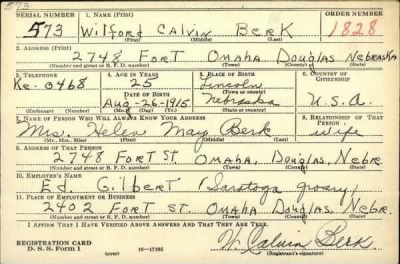 573
SERIAL NUMBER 1. NAME (Print) ORDER NUMBER
573 Wilford Calvin Berk 1828
(First) (Middle) (Last)
2. ADDRESS (Print)
2748 Fort Omaha Douglas Nebraska
(Number and street or R. F. D. number) (Town) (County) (State)
3. TELEPHONE 4. AGE IN YEARS 5. PLACE OF BIRTH 6. COUNTRY OF CITIZENSHIP
Ke. 0468 25 Lincoln
DATE OF BIRTH (Town or county)
Aug-26-1915 Nebraska U.S.A.
(Exchange) (Number) (Mo.) (Day) (Yr.) (State or country)
7. NAME OF PERSON WHO WILL ALWAYS KNOW YOUR ADDRESS 8. RELATIONSHIP OF THAT PERSON
Mrs. Helen May Berk wife
(Mr., Mrs., Miss) (First) (Middle) (Last)
9. ADDRESS OF THAT PERSON
2748 Fort St. Omaha, Douglas, Nebr.
(Number and street or R. F. D. number) (Town) (County) (State)
10. EMPLOYER'S NAME
Ed. Gilbert (Saratoga grocery)
11. PLACE OF EMPLOYMENT OR BUSINESS
2402 Fort St. Omaha Douglas, Nebr.
(Number and street or R. F. D. number) (Town) (County) (State)
I AFFIRM THAT I HAVE VERIFIED ABOVE ANSWERS AND THAT THEY ARE TRUE.
REGISTRATION CARD W. Calvin Berk
D. S. S. Form 1 (over) 16-17105 (Registrant's signature)